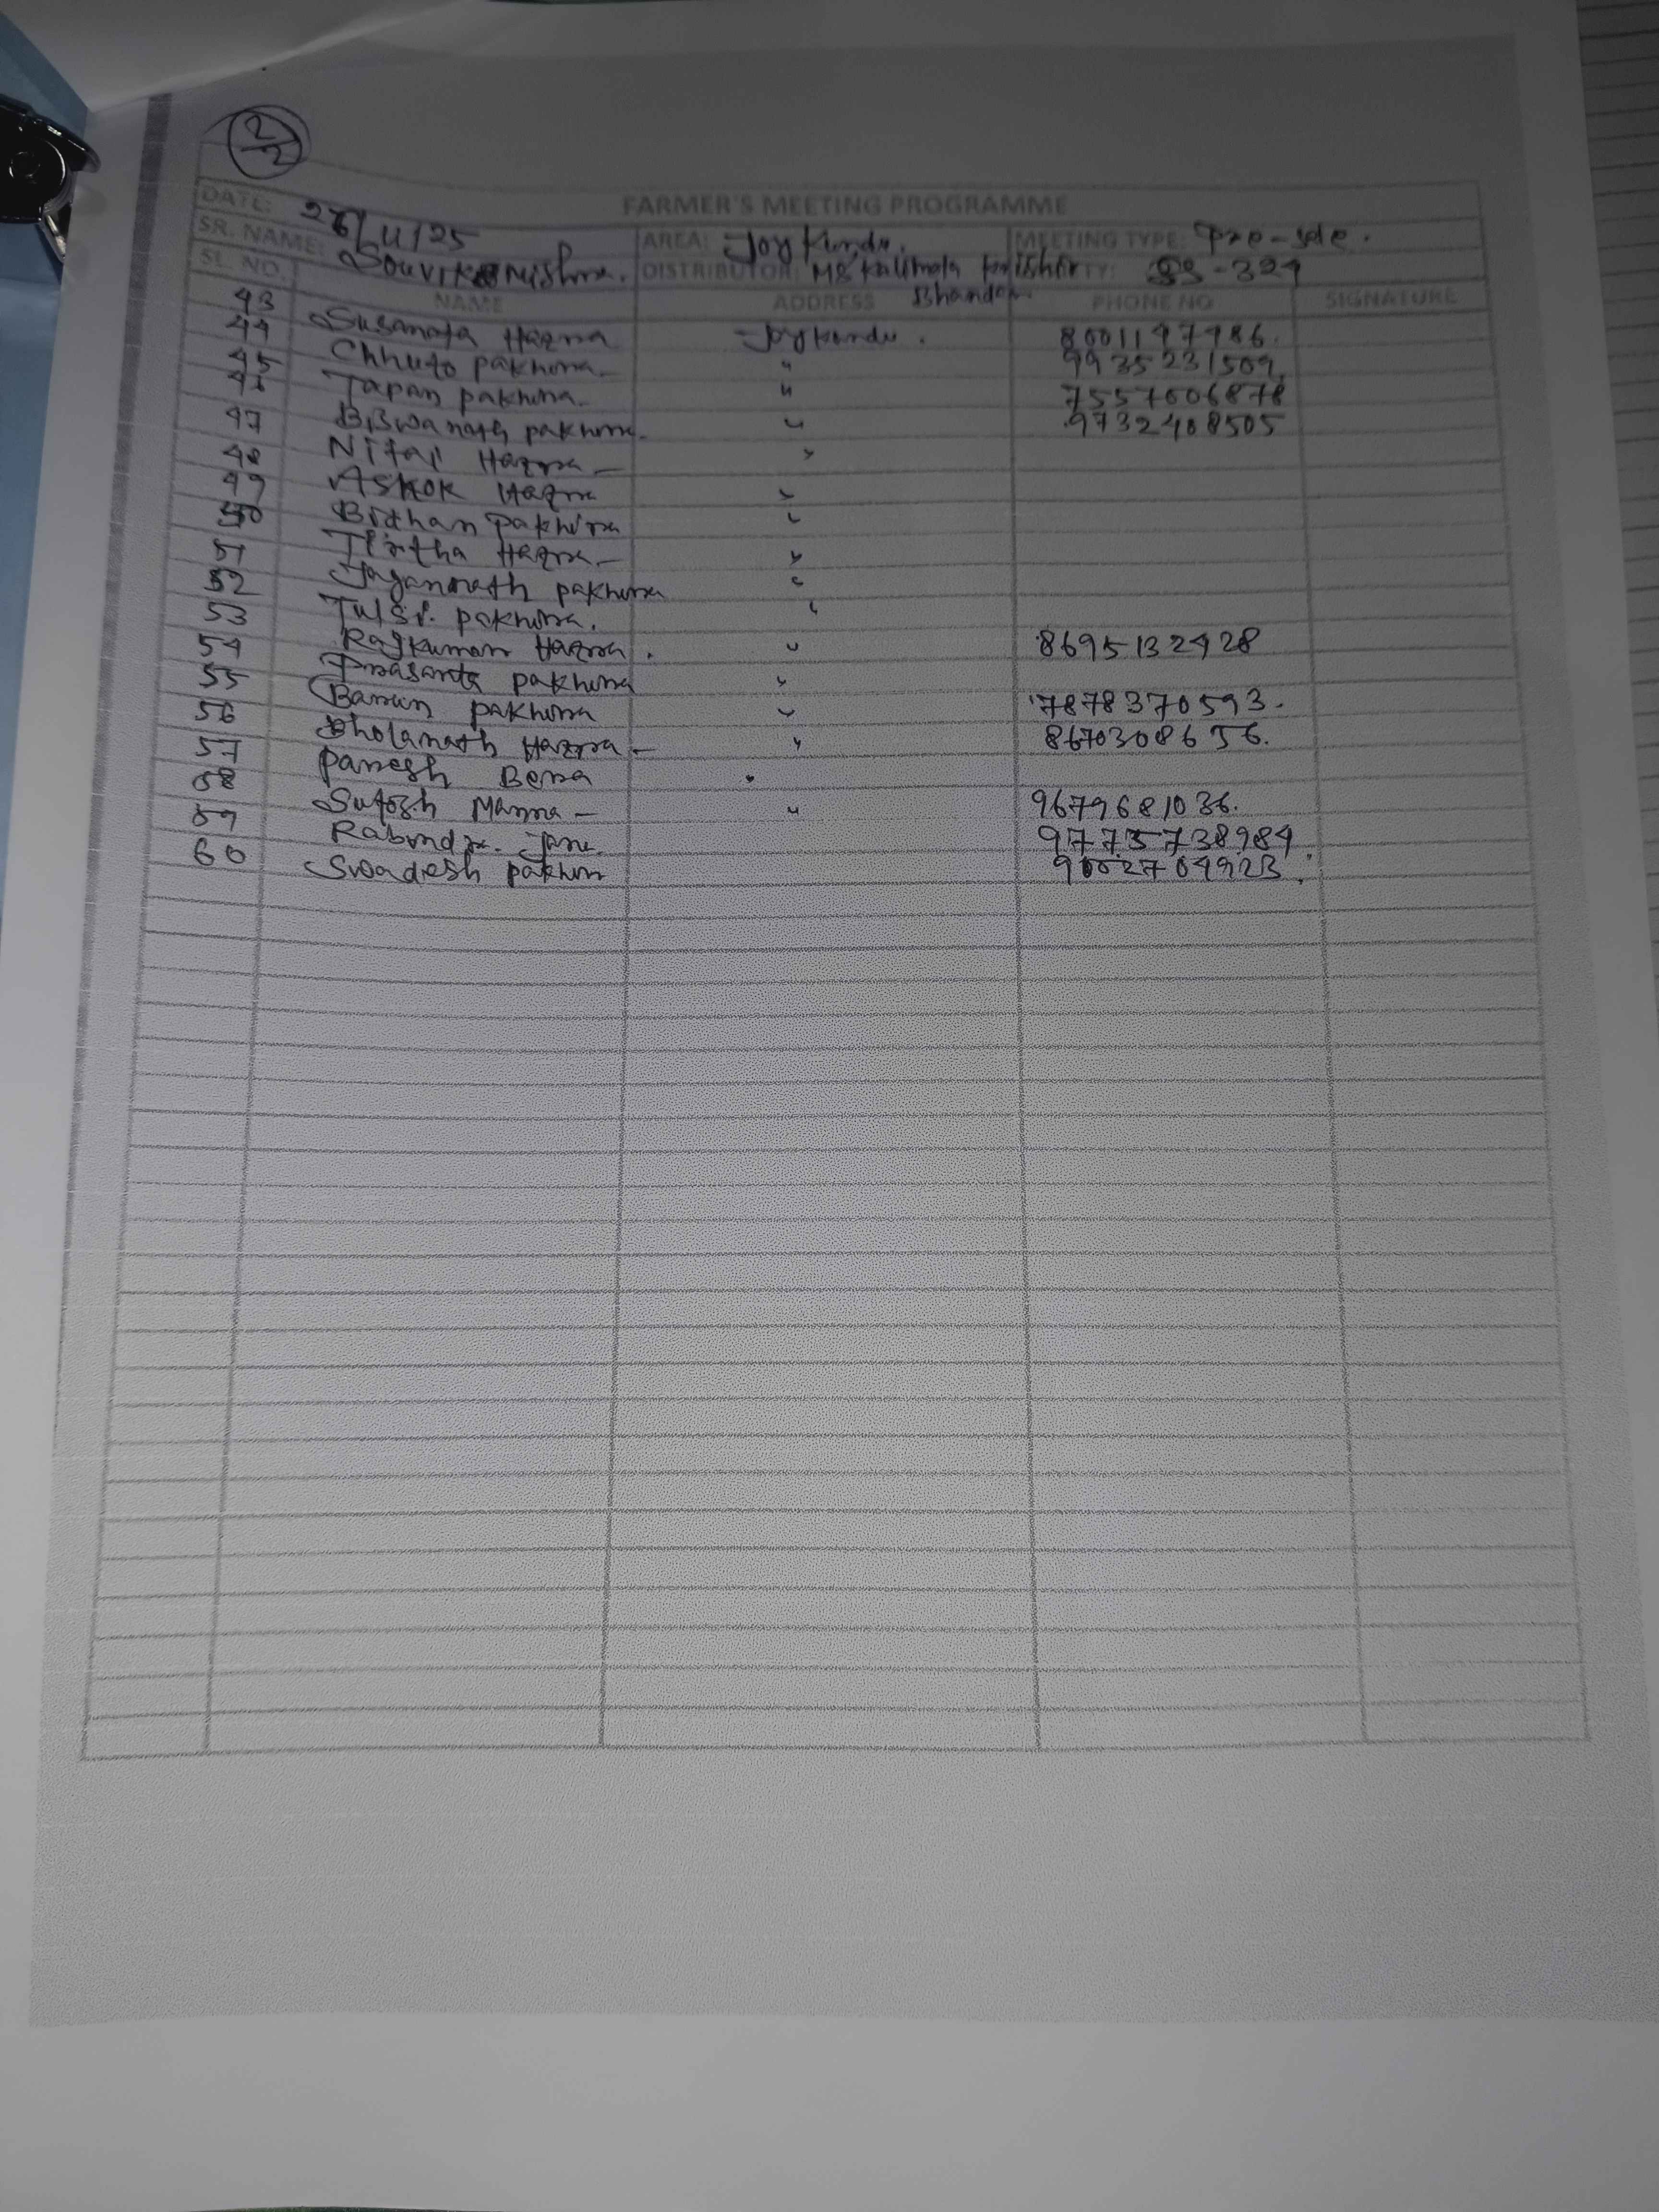 2/2
FARMER'S MEETING PROGRAMME
DATE: 26/11/25 AREA: Joykundu. MEETING TYPE: Pre-sale.
SR. NAME: Souvik Mishra. DISTRIBUTOR: M/S Kalimata Bhandar. SS-324
SL. NO. NAME ADDRESS PHONE NO SIGNATURE
43 Susanata Hazra Joykundu. 8001197986.
44 Chhuto pakhira. " 9935231509.
45 Tapan pakhira. " 7557606878
46 Biswanath pakhira. " 9732408505
47 Nitai Hazra "
48 Askok Hazra "
49 Bidhan pakhira "
50 Tirtha Hazra "
51 Jagannath pakhira "
52 Tulsi. pakhira. "
53 Rajkumar Hazra. " 8695132428
54 Prasanta pakhira "
55 Barun pakhira " 7878370593.
56 Bholanath Hazra " 8670308656.
57 Paresh Bera "
58 Sutosh Manna " 9679681036.
59 Rabindra. Jana. 9773738984
60 Swadesh pakhira 9002704923.